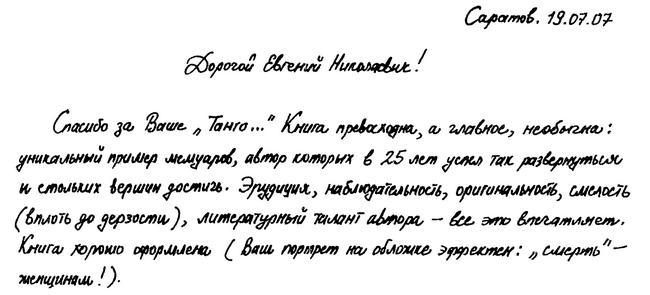 Саратов. 19.07.07
Дорогой Евгений Николаевич!
Спасибо за Ваше „Танго..." Книга превосходна, а главное, необычна:
уникальный пример мемуаров, автор которых в 25 лет успел так развернуться
и стольких вершин достичь. Эрудиция, наблюдательность, оригинальность, смелость
(вплоть до дерзости), литературный талант автора – все это впечатляет.
Книга хорошо оформлена (Ваш портрет на обложке эффектен: „смерть" –
женщинам!).